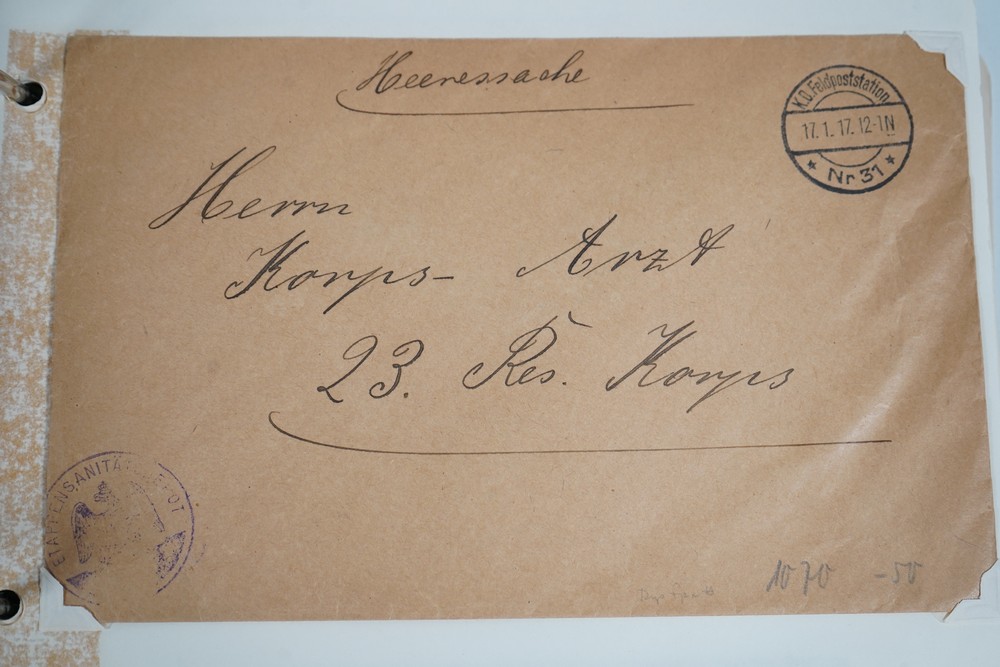 Heeressache
K.D.Feldpoststation
17.1.17.12-1N
* Nr 31 *
Herrn
Korps- Arzt
23. Res. Korps
ETAPPENSANITÄTSDEPOT
1070 -50